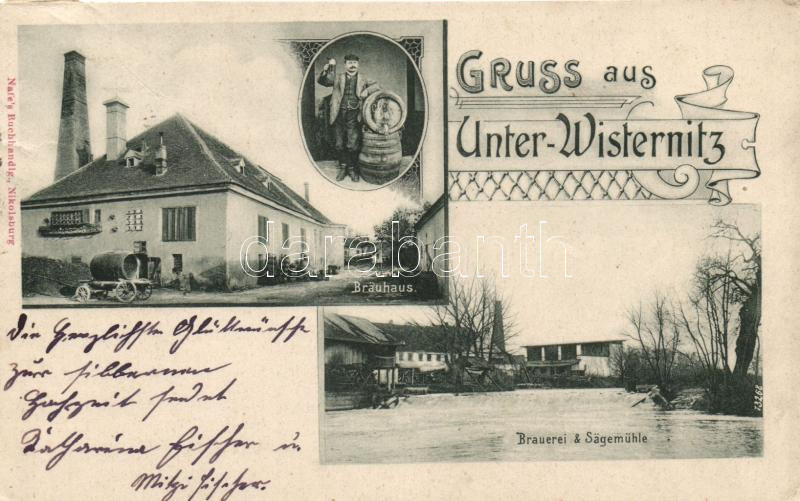 GRUSS aus
Unter-Wisternitz
Nafe's Buchhandlg., Nikolsburg
Bräuhaus.
darabanth
Brauerei & Sägemühle
23268
Die herzlichsten Glückwünsche
zur silbernen
Hochzeit sendet
Katharina Fischer u.
Mitzi Fischer.